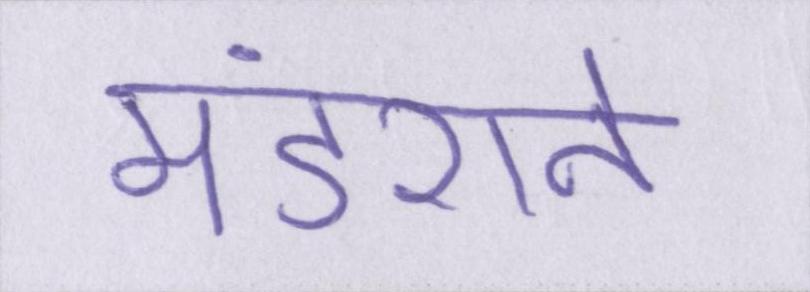 मंडराने